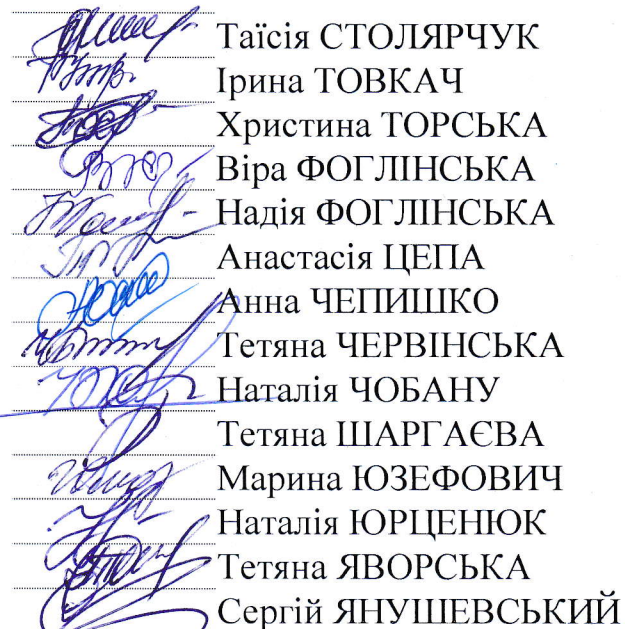 Таїсія СТОЛЯРЧУК
Ірина ТОВКАЧ
Христина ТОРСЬКА
Віра ФОГЛІНСЬКА
Надія ФОГЛІНСЬКА
Анастасія ЦЕПА
Анна ЧЕПИШКО
Тетяна ЧЕРВІНСЬКА
Наталія ЧОБАНУ
Тетяна ШАРГАЄВА
Марина ЮЗЕФОВИЧ
Наталія ЮРЦЕНЮК
Тетяна ЯВОРСЬКА
Сергій ЯНУШЕВСЬКИЙ